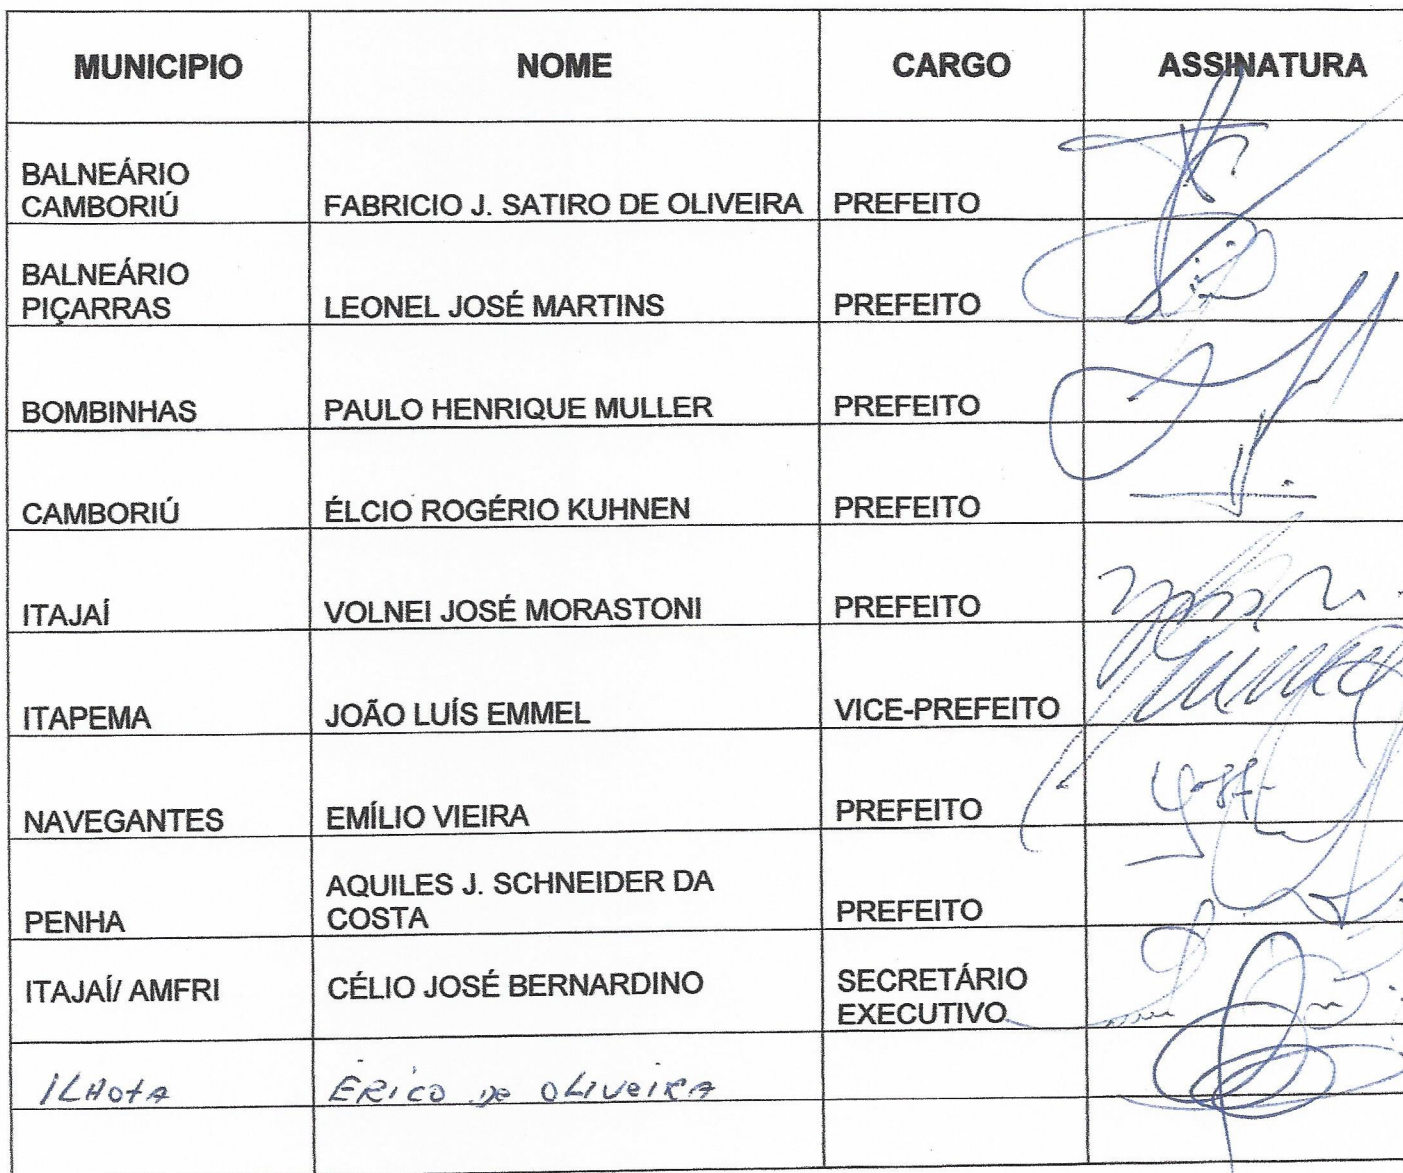 MUNICIPIO NOME CARGO ASSINATURA
BALNEÁRIO
CAMBORIÚ FABRICIO J. SATIRO DE OLIVEIRA PREFEITO
BALNEÁRIO
PIÇARRAS LEONEL JOSÉ MARTINS PREFEITO
BOMBINHAS PAULO HENRIQUE MULLER PREFEITO
CAMBORIÚ ÉLCIO ROGÉRIO KUHNEN PREFEITO
ITAJAÍ VOLNEI JOSÉ MORASTONI PREFEITO
ITAPEMA JOÃO LUÍS EMMEL VICE-PREFEITO
NAVEGANTES EMÍLIO VIEIRA PREFEITO
PENHA AQUILES J. SCHNEIDER DA
COSTA PREFEITO
ITAJAÍ/ AMFRI CÉLIO JOSÉ BERNARDINO SECRETÁRIO
EXECUTIVO
ILHOTA ERICO DE OLIVEIRA